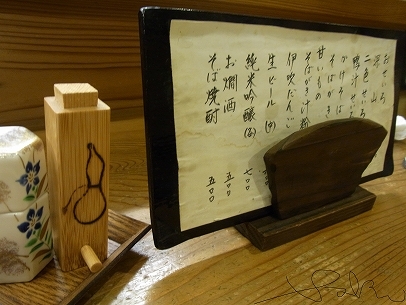 おせいろ
深山
二色せいろ
鴨汁せいろ
かけそば
そばがき
甘いもの
そばがき汁粉
伊吹だんご
生ビール (中)
純米吟醸(冷) 七〇〇
お燗酒 五〇〇
そば焼酎 五〇〇